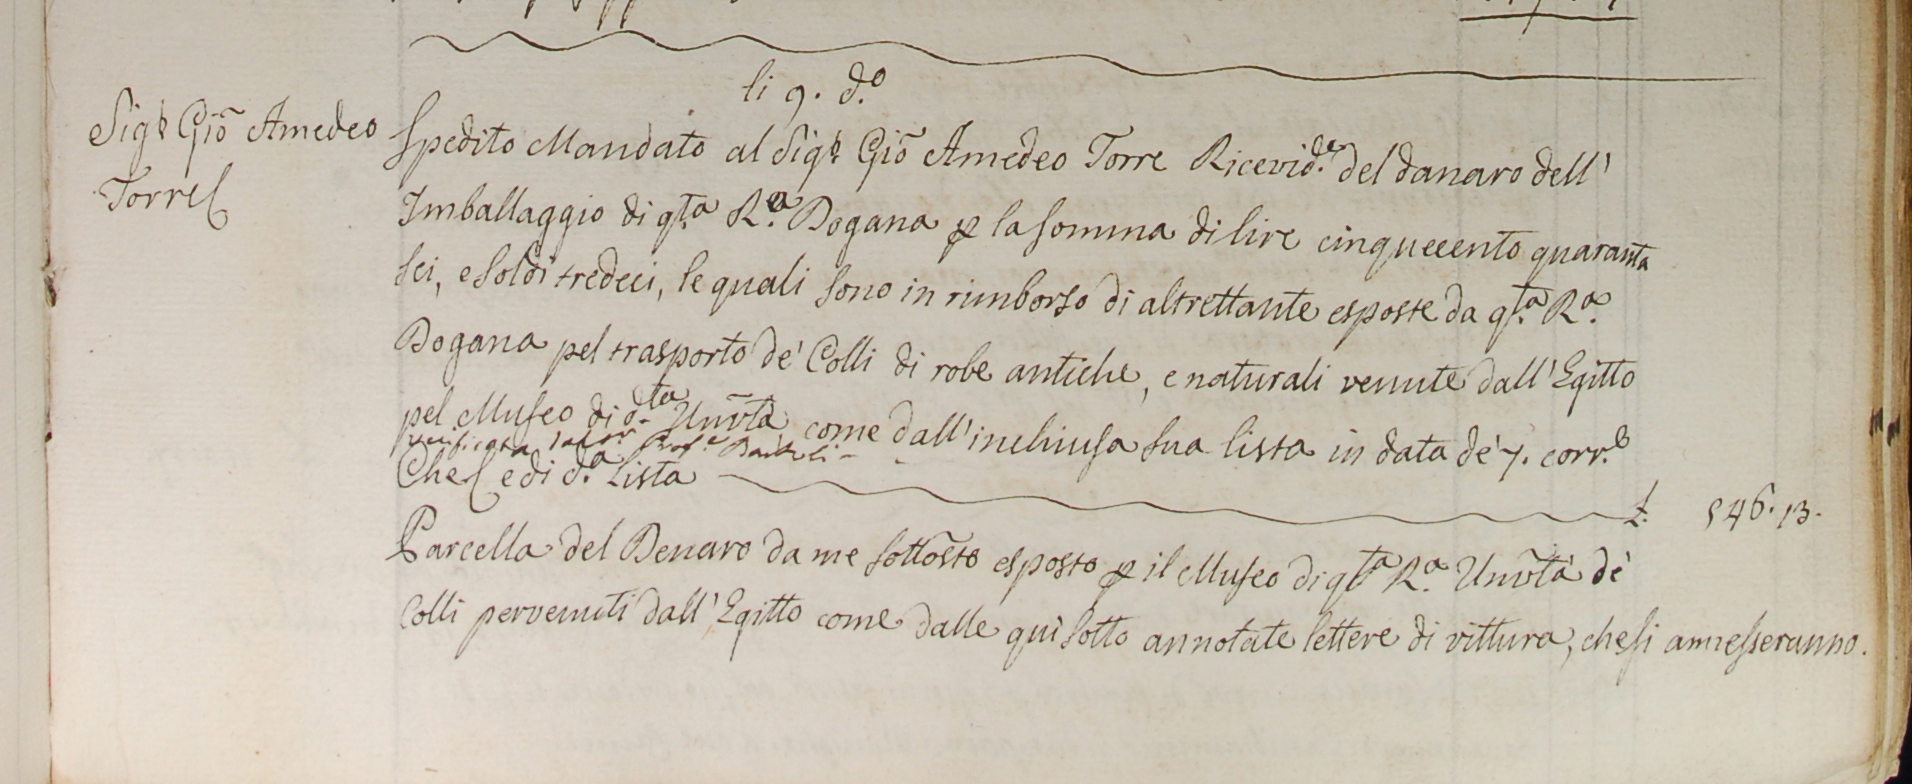 li 9. d.o
Sig.r Giõ Amedeo
Torre
Spedito Mandato al Sig.r Giõ Amedeo Torre Ricevid.e del danaro dell'
Imballaggio di q.ta R.a Dogana p la somma di lire cinquecento quaranta
sei, e soldi tredeci, le quali sono in rimborso di altrettante esposte da q.ta R.a
Dogana pel trasporto de' Colli di robe antiche, e naturali venute dall'Egitto
pel Museo di d.ta Uniṽtà come dall'inchiusa sua lista in data de' 7. corr.e
Prof.e
Che e di d.a Lista £. 546. 13.
Parcella del Denaro da me sottos̃to esposto p il Museo di q.ta R.a Uniṽtà de'
Colli pervenuti dall'Egitto come dalle quì sotto annotate lettere di vittura, che si annesseranno.